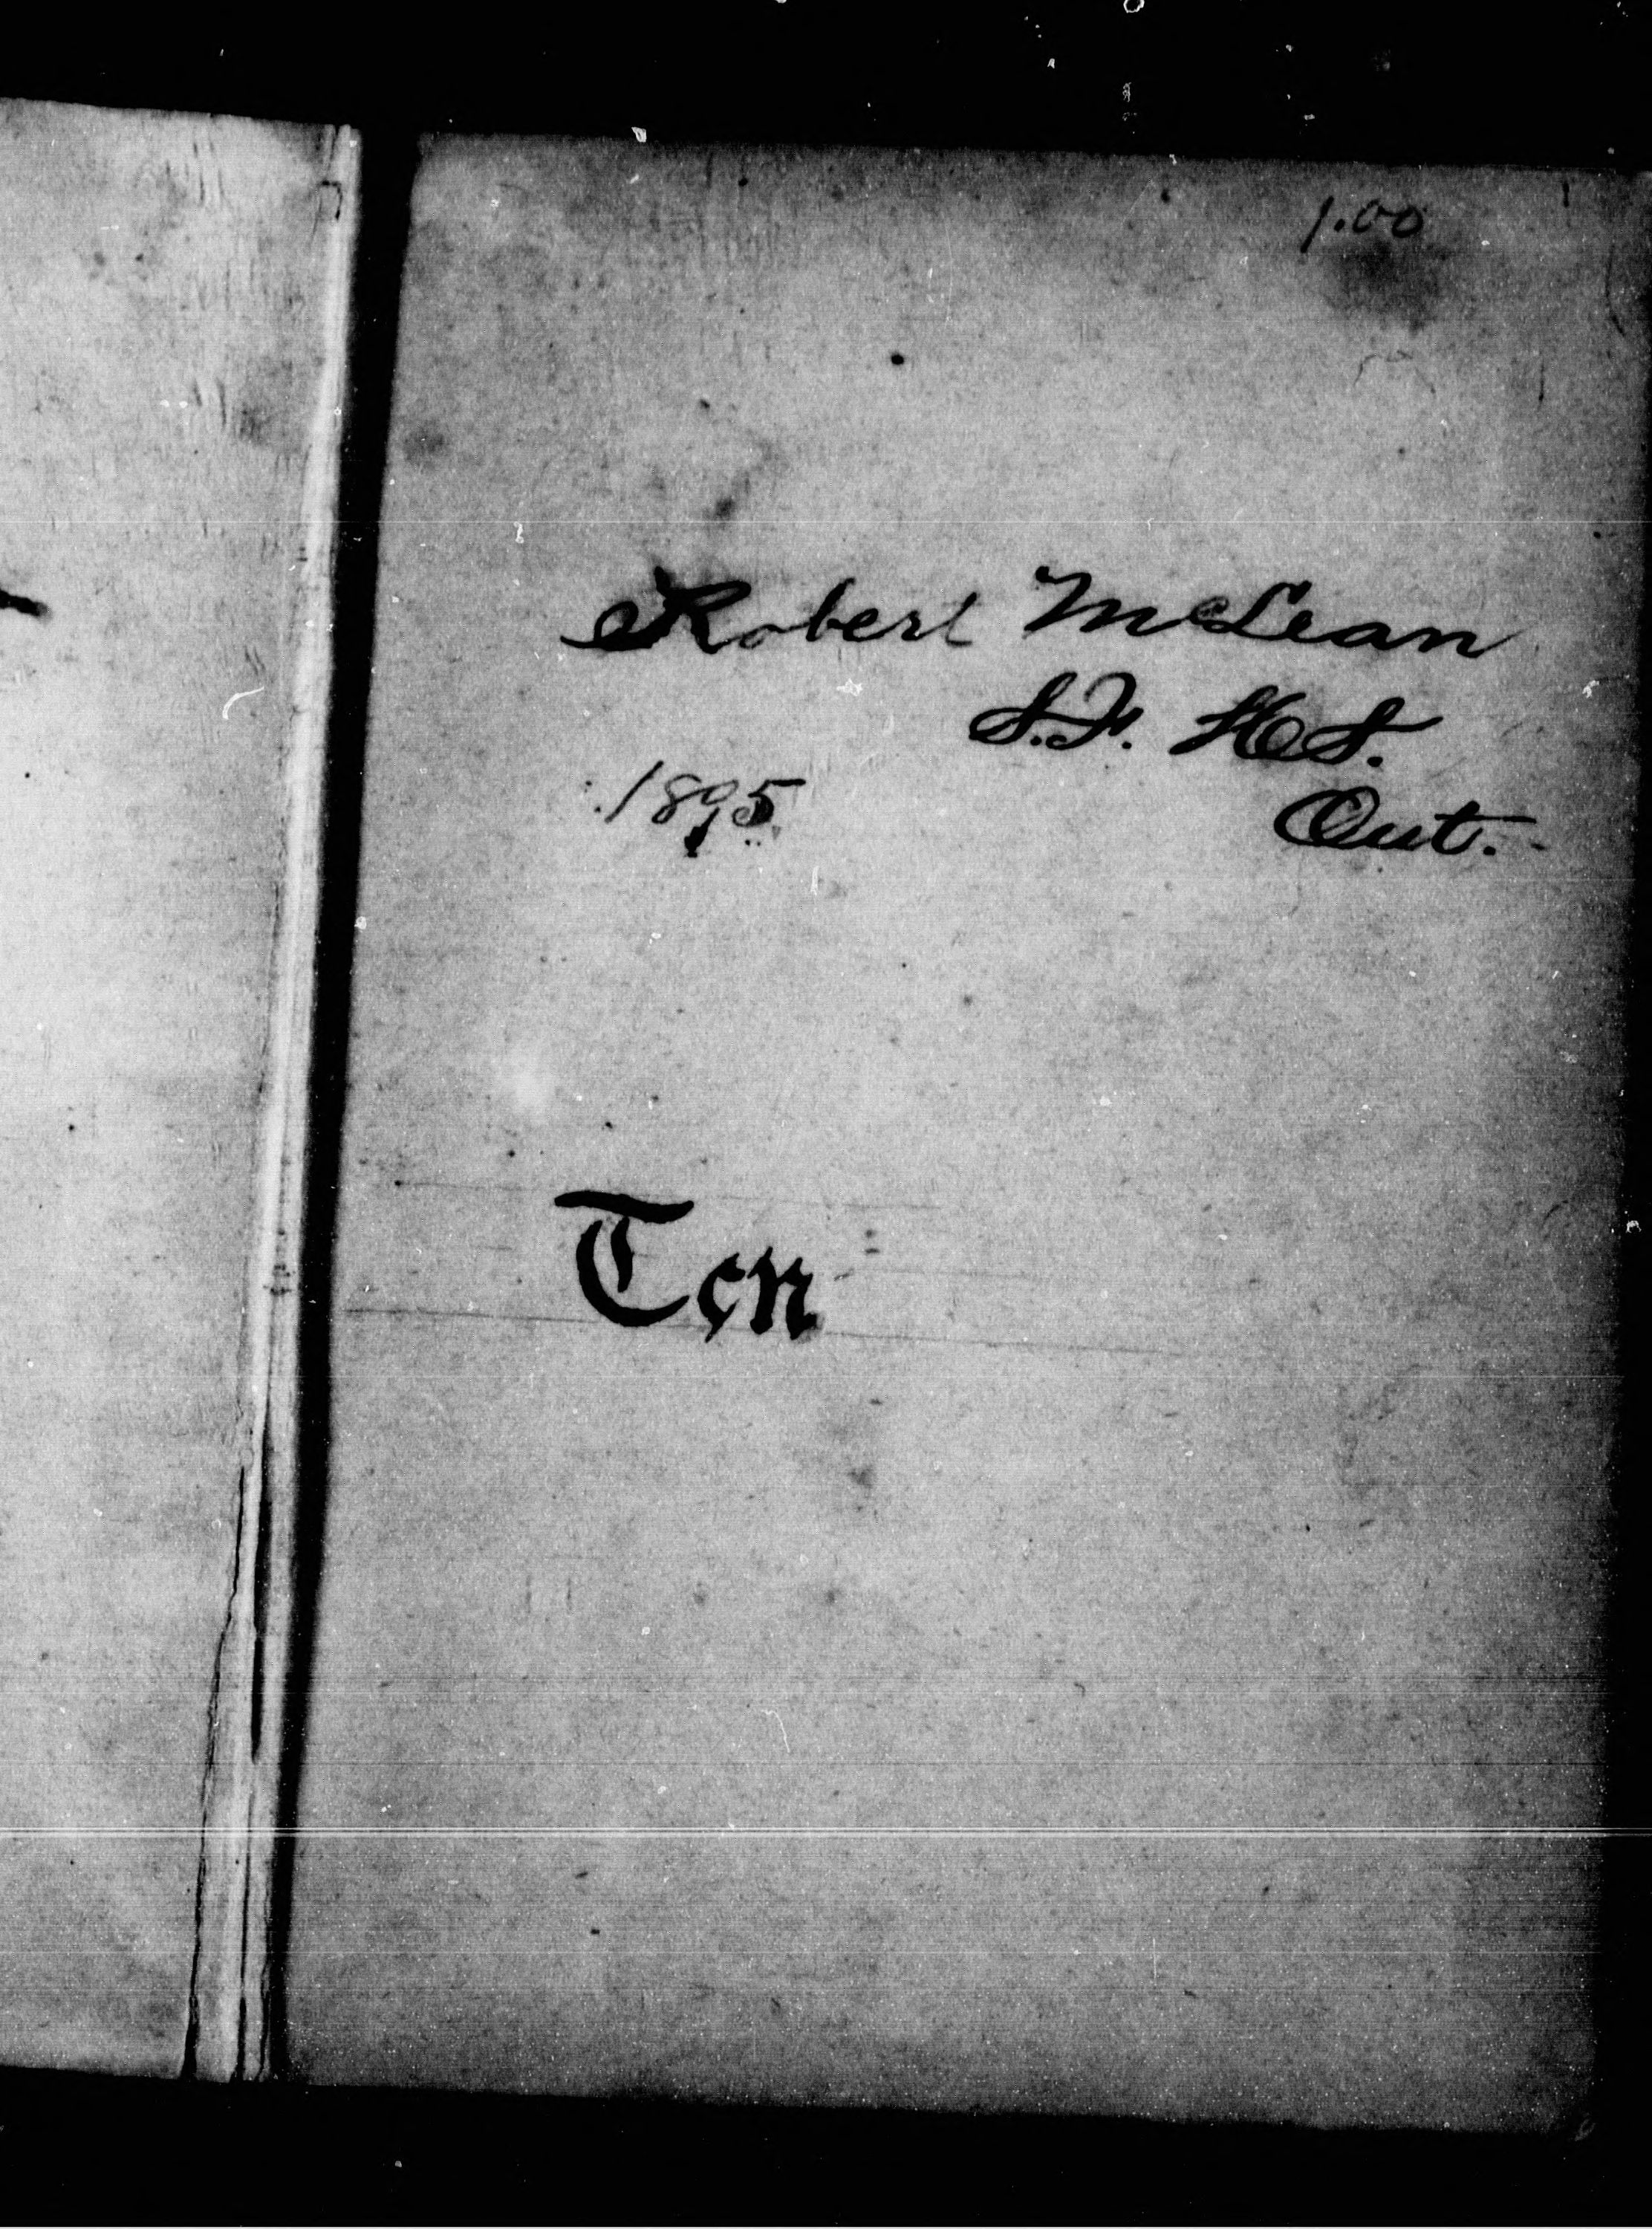 1.00
Robert McLean
S.F. H.S.
1895. Out.
Ten